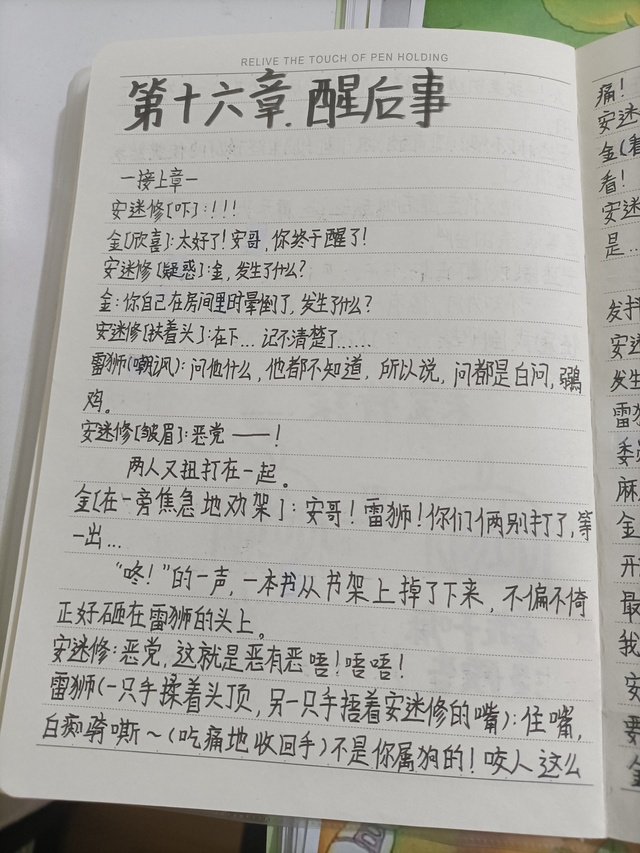 RELIVE THE TOUCH OF PEN HOLDING
第十六章.醒后事
—接上章—
安迷修[吓]:!!!
金[欣喜]:太好了!安哥,你终于醒了!
安迷修[疑惑]:金,发生了什么?
金:你自己在房间里时晕倒了,发生了什么?
安迷修[扶着头]:在下...记不清楚了......
雷狮(嘲讽):问他什么,他都不知道,所以说,问都是白问,弱鸡
鸡。
安迷修[皱眉]:恶党——!
两人又扭打在一起。
金[在一旁焦急地劝架]:安哥!雷狮!你们俩别打了,等
一出...
“咚!”的一声,一本书从书架上掉了下来,不偏不倚
正好砸在雷狮的头上。
安迷修:恶党,这就是恶有恶唔!唔唔!
雷狮(一只手揉着头顶,另一只手捂着安迷修的嘴):住嘴,
白痴骑嘶~(吃痛地收回手)不是你属狗的!咬人这么
痛!
安迷
金(着
看!
安迷
是...
发抖
安迷
发生
雷狮
委员
麻
金
开
最
我
安
要
金